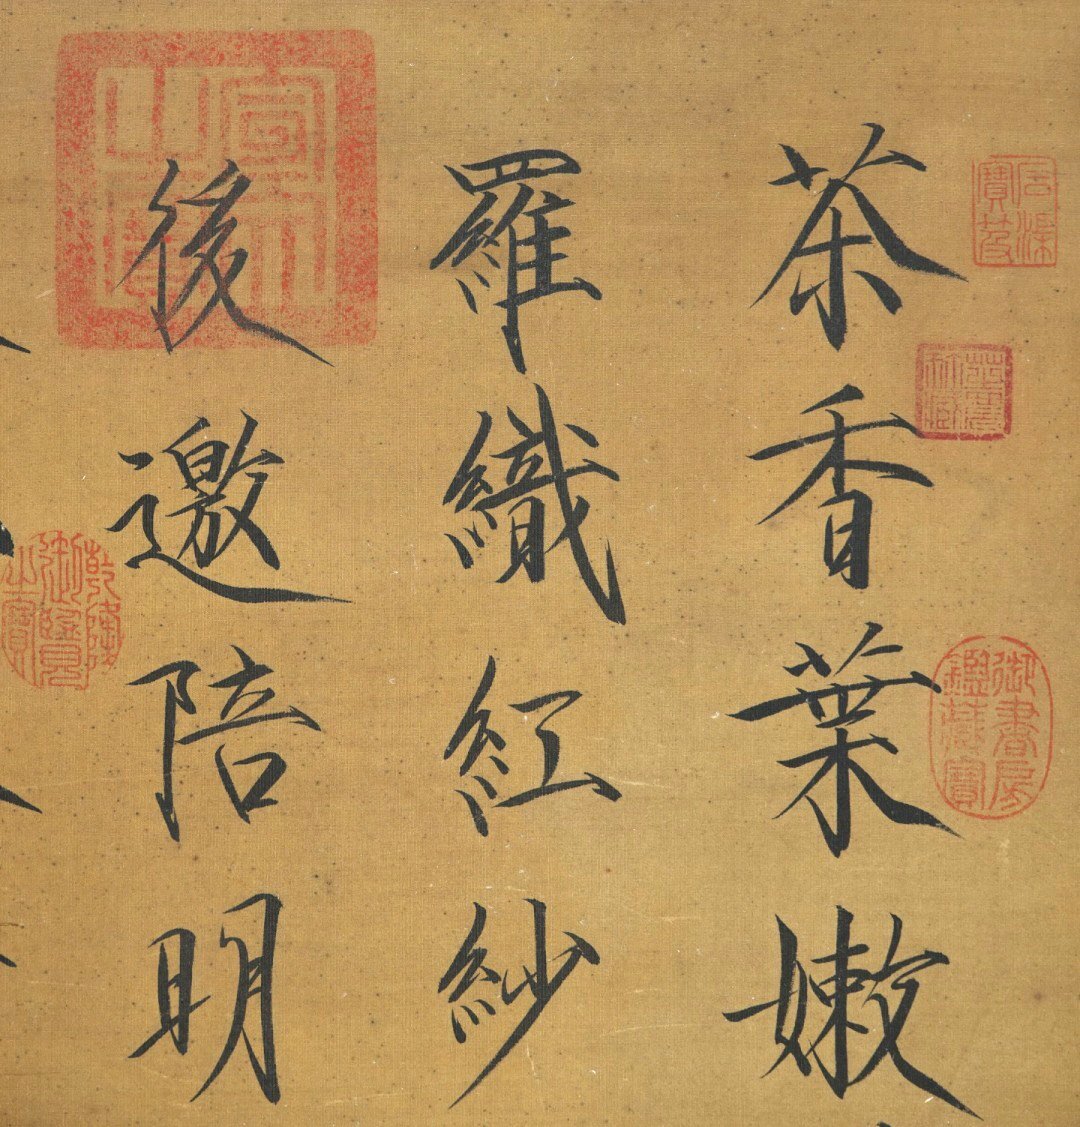 茶香葉嫩
羅織紅紗
後邀陪明
石渠寶笈
御書房鑑藏寶
乾隆御覽之寶